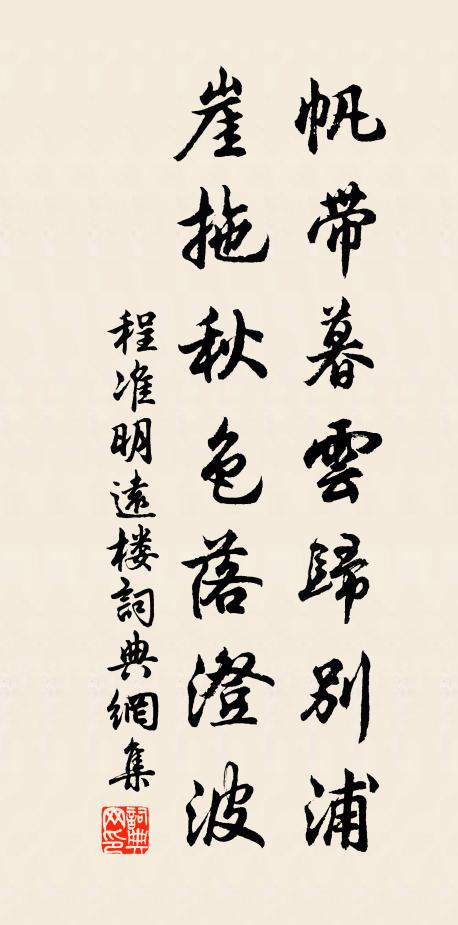 帆帶暮雲歸别浦
崖拖秋色落澄波
程准明遠楼詞典網集
詞典网印